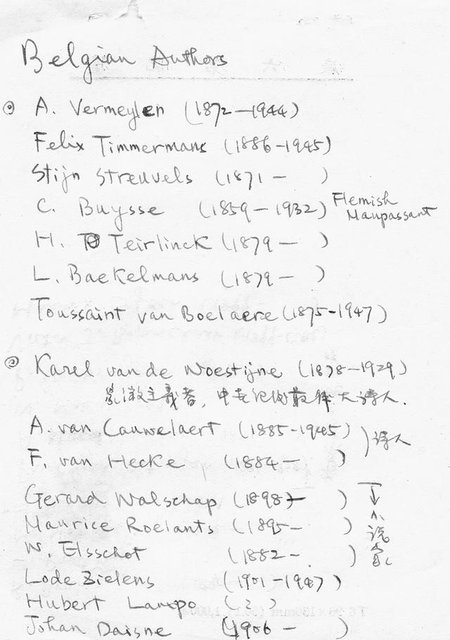 Belgian Authors
⊙ A. Vermeylen (1872-1944)
Felix Timmermans (1886-1945)
Stijn Streuvels (1871- )
C. Buysse (1859-1932) Flemish Maupassant
H. Teirlinck (1879- )
L. Baekelmans (1879- )
Toussaint van Boelaere (1875-1947)
⊙ Karel van de Woestijne (1878-1929)
象徵主義者, 最偉大詩人.
A. van Cauwelaert (1885-1945)
F. van Hecke (1884- ) 詩人
Gerard Walschap (1898- )
Maurice Roelants (1895- )
W. Elsschot (1882- ) ↓小说家
Lode Zielens (1901-1947)
Hubert Lampo (? )
Johan Daisne (1906- )